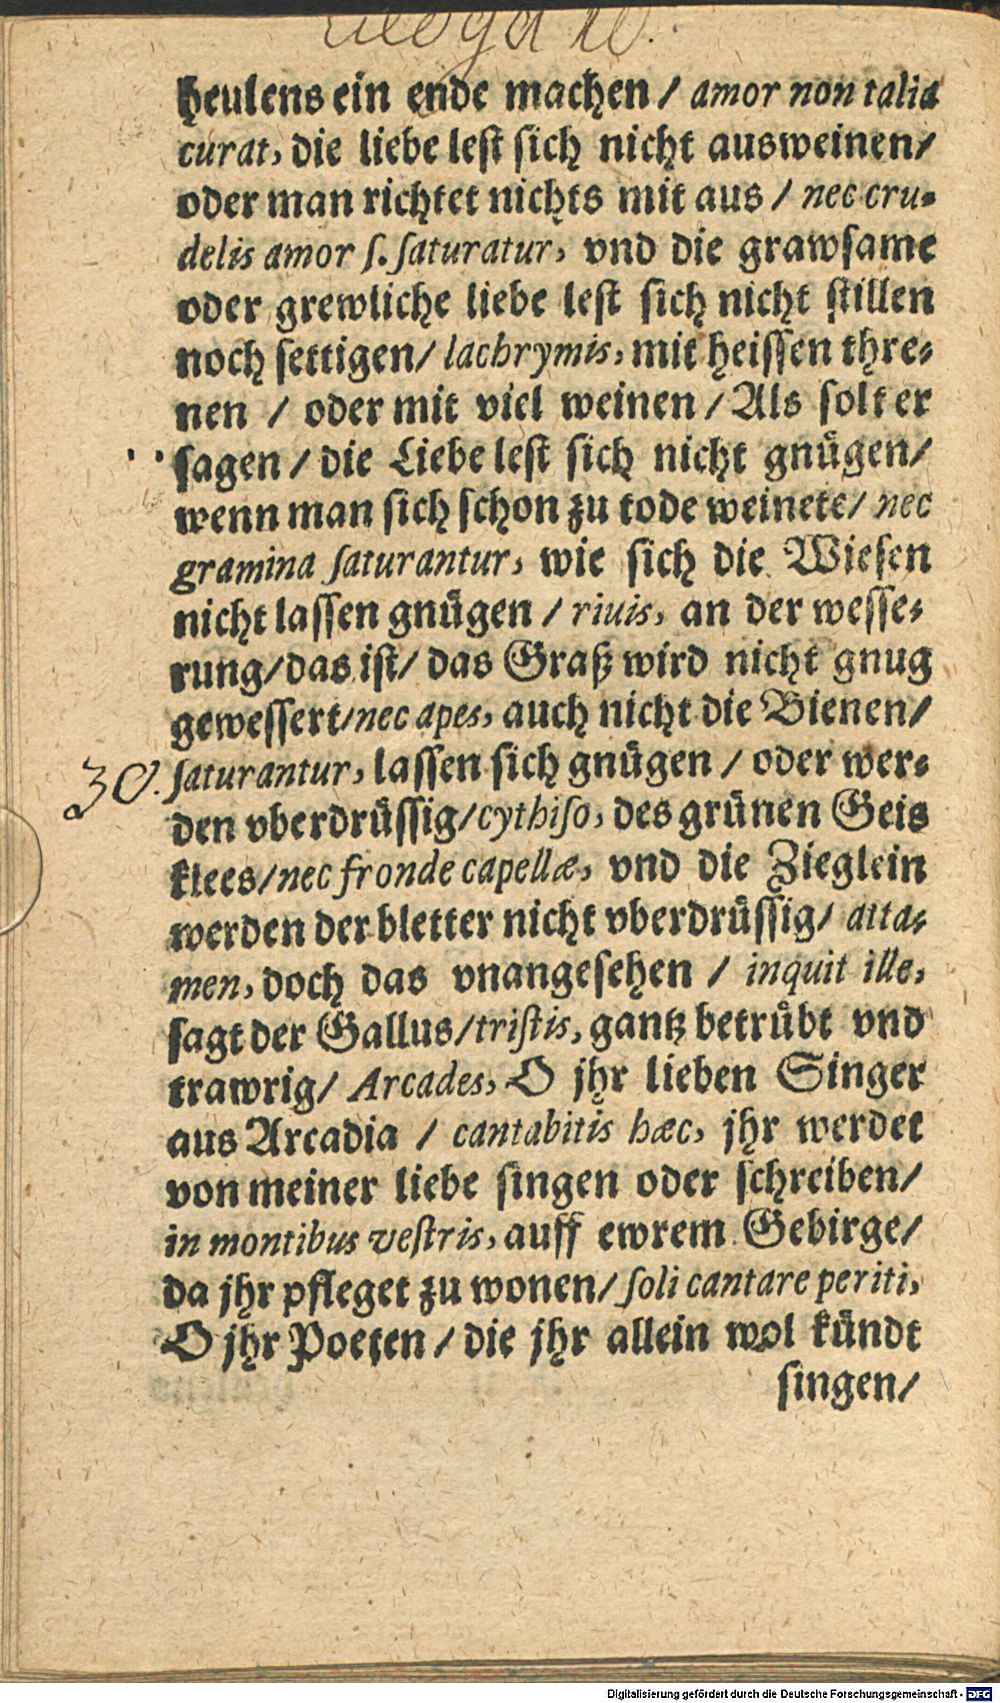 heulens ein ende machen / amor non talia
curat, die liebe lest sich nicht ausweinen/
oder man richtet nichts mit aus / nec cru-
delis amor ſ. ſaturatur, vnd die grawſame
oder grewliche liebe leſt ſich nicht ſtillen
noch ſettigen/ lachrymis, mit heiſſen thre-
nen / oder mit viel weinen / Als ſolt er
ſagen / die Liebe leſt ſich nicht gnuͤgen/
wenn man ſich ſchon zu tode weinete/ nec
gramina ſaturantur, wie ſich die Wieſen
nicht laſſen gnuͤgen / riuis, an der weſſe-
rung/ das iſt/ das Graß wird nicht gnug
geweſſert/ nec apes, auch nicht die Bienen/
30. ſaturantur, laſſen ſich gnuͤgen / oder wer-
den vberdruͤſſig/ cythiſo, des gruͤnen Geis
klees/ nec fronde capellæ, vnd die Zieglein
werden der bletter nicht vberdruͤſſig/ atta-
men, doch das vnangeſehen / inquit ille,
ſagt der Gallus/ triſtis, gantz betruͤbt vnd
trawrig/ Arcades, O jhr lieben Singer
aus Arcadia / cantabitis hæc, jhr werdet
von meiner liebe ſingen oder ſchreiben/
in montibus veſtris, auff ewrem Gebirge/
da jhr pfleget zu wonen/ ſoli cantare periti,
O jhr Poeten / die jhr allein wol kuͤndt
ſingen/
Digitalisierung gefördert durch die Deutsche Forschungsgemeinschaft - DFG